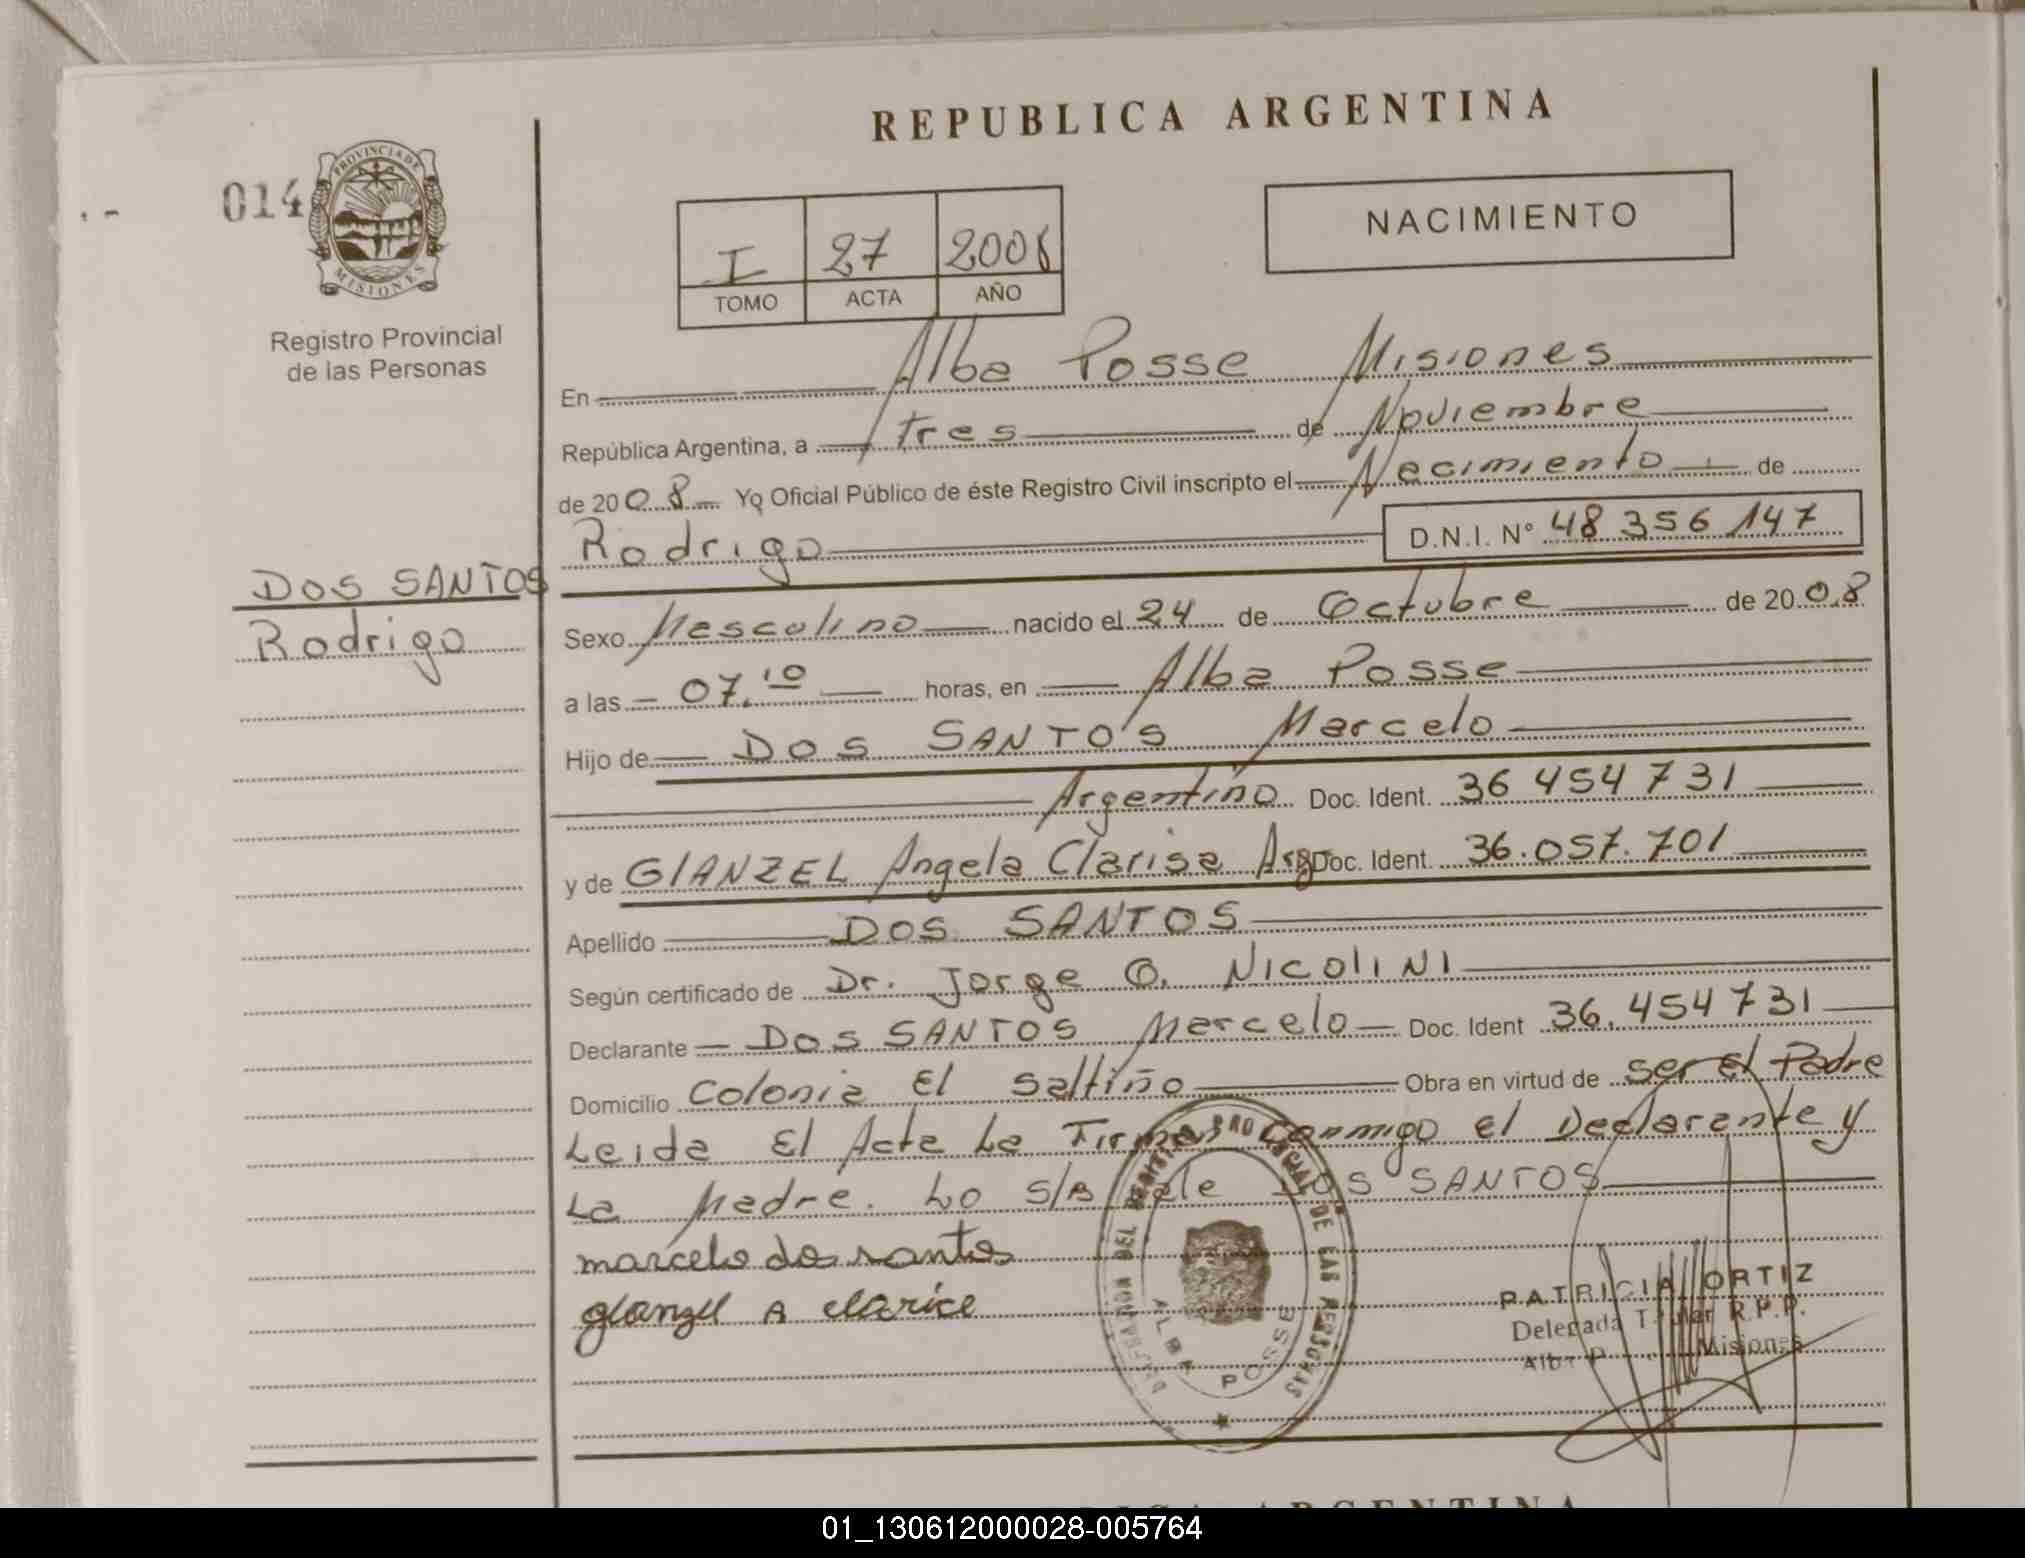 REPUBLICA ARGENTINA
014
PROVINCIA DE
MISIONES
Registro Provincial
de las Personas
I 27 2008
TOMO ACTA AÑO
NACIMIENTO
En Alba Posse Misiones
República Argentina, a tres de Noviembre
de 2008 Yo Oficial Público de éste Registro Civil inscripto el Nacimiento de
Rodrigo D.N.I. N° 48 356 147
DOS SANTOS
Rodrigo
Sexo Masculino nacido el 24 de Octubre de 2008
a las 07.10 horas, en Alba Posse
Hijo de DOS SANTOS Marcelo
Argentino Doc. Ident. 36 454 731
y de GLANZEL Angela Clarisa Arg Doc. Ident. 36.057.701
Apellido DOS SANTOS
Según certificado de Dr. Jorge O. NICOLINI
Declarante DOS SANTOS Marcelo Doc. Ident 36.454 731
Domicilio Colonia El Saltiño Obra en virtud de ser el Padre
Leida El Acta La Firman conmigo el Declarante y
La Madre. Lo S/B Vale DOS SANTOS
marcelo dos santos
glanzel A clarice
DEL REGISTRO PROVINCIAL DE LAS PERSONAS
ALBA POSSE
PATRICIA ORTIZ
Delegada Titular R.P.P.
Alba P Misiones
REPUBLICA ARGENTINA
01_130612000028-005764